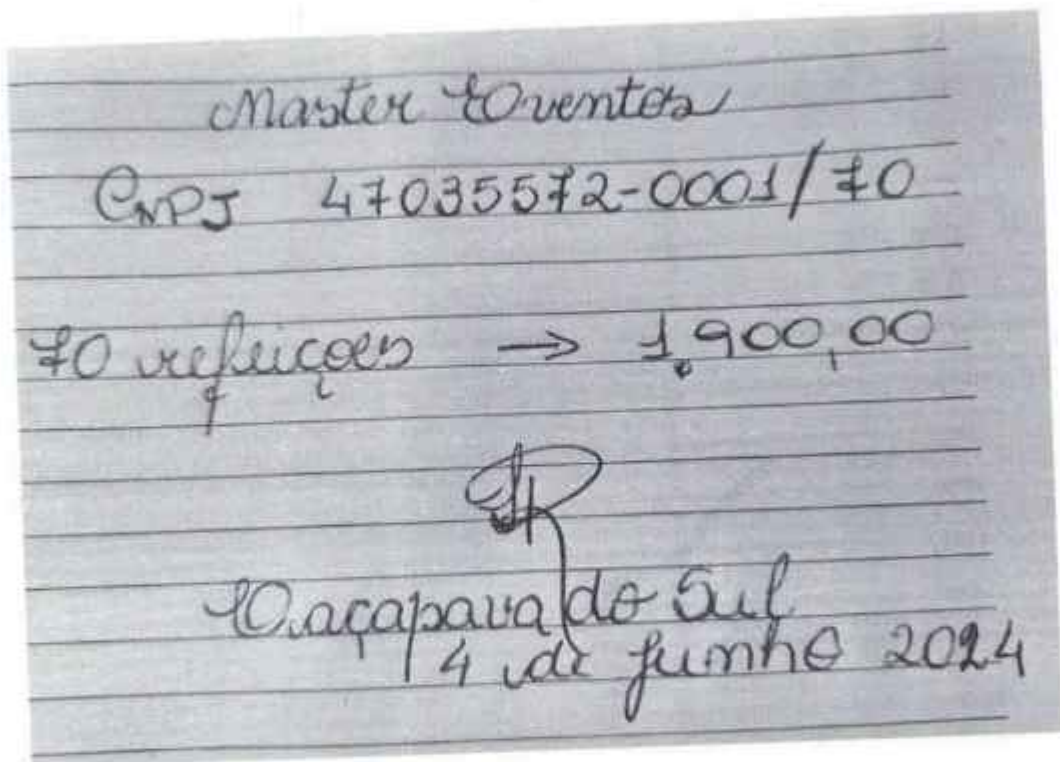 Master Eventos
CNPJ 47035572-0001/70
70 refeições → 1.900,00
Caçapava do Sul
4 de junho 2024